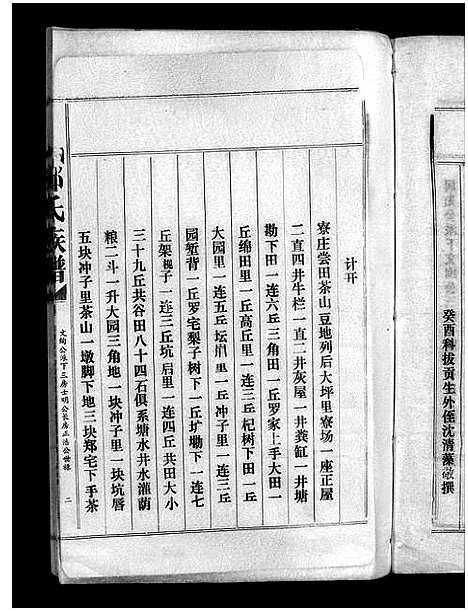 癸酉科拔贡生外侄沈清藻敬撰
计开
寮庄尝田茶山豆地列后大坪里寮场一座正屋
二直四井牛栏一直二井灰屋一井粪缸一井塘
勘下田一连六丘三角田一丘罗家上手大田一
丘绵田里一丘高丘里一丘三连三丘杞树下田一丘
大园里一连五丘坛埧里一丘冲子里一连三丘
园堑背一丘罗宅梨子树下一丘圹墈下一连七
丘架枧子一连三丘坑启里一连四丘共田大小
三十九丘共谷田八十四石俱系塘水井水灌荫
粮二斗一升大园三角地一块冲子里一块坑唇
五块冲子里茶山一墩脚下地三块郑宅下手茶
氏族谱
文绚公派下三房士明公长房正浩公世禄
二